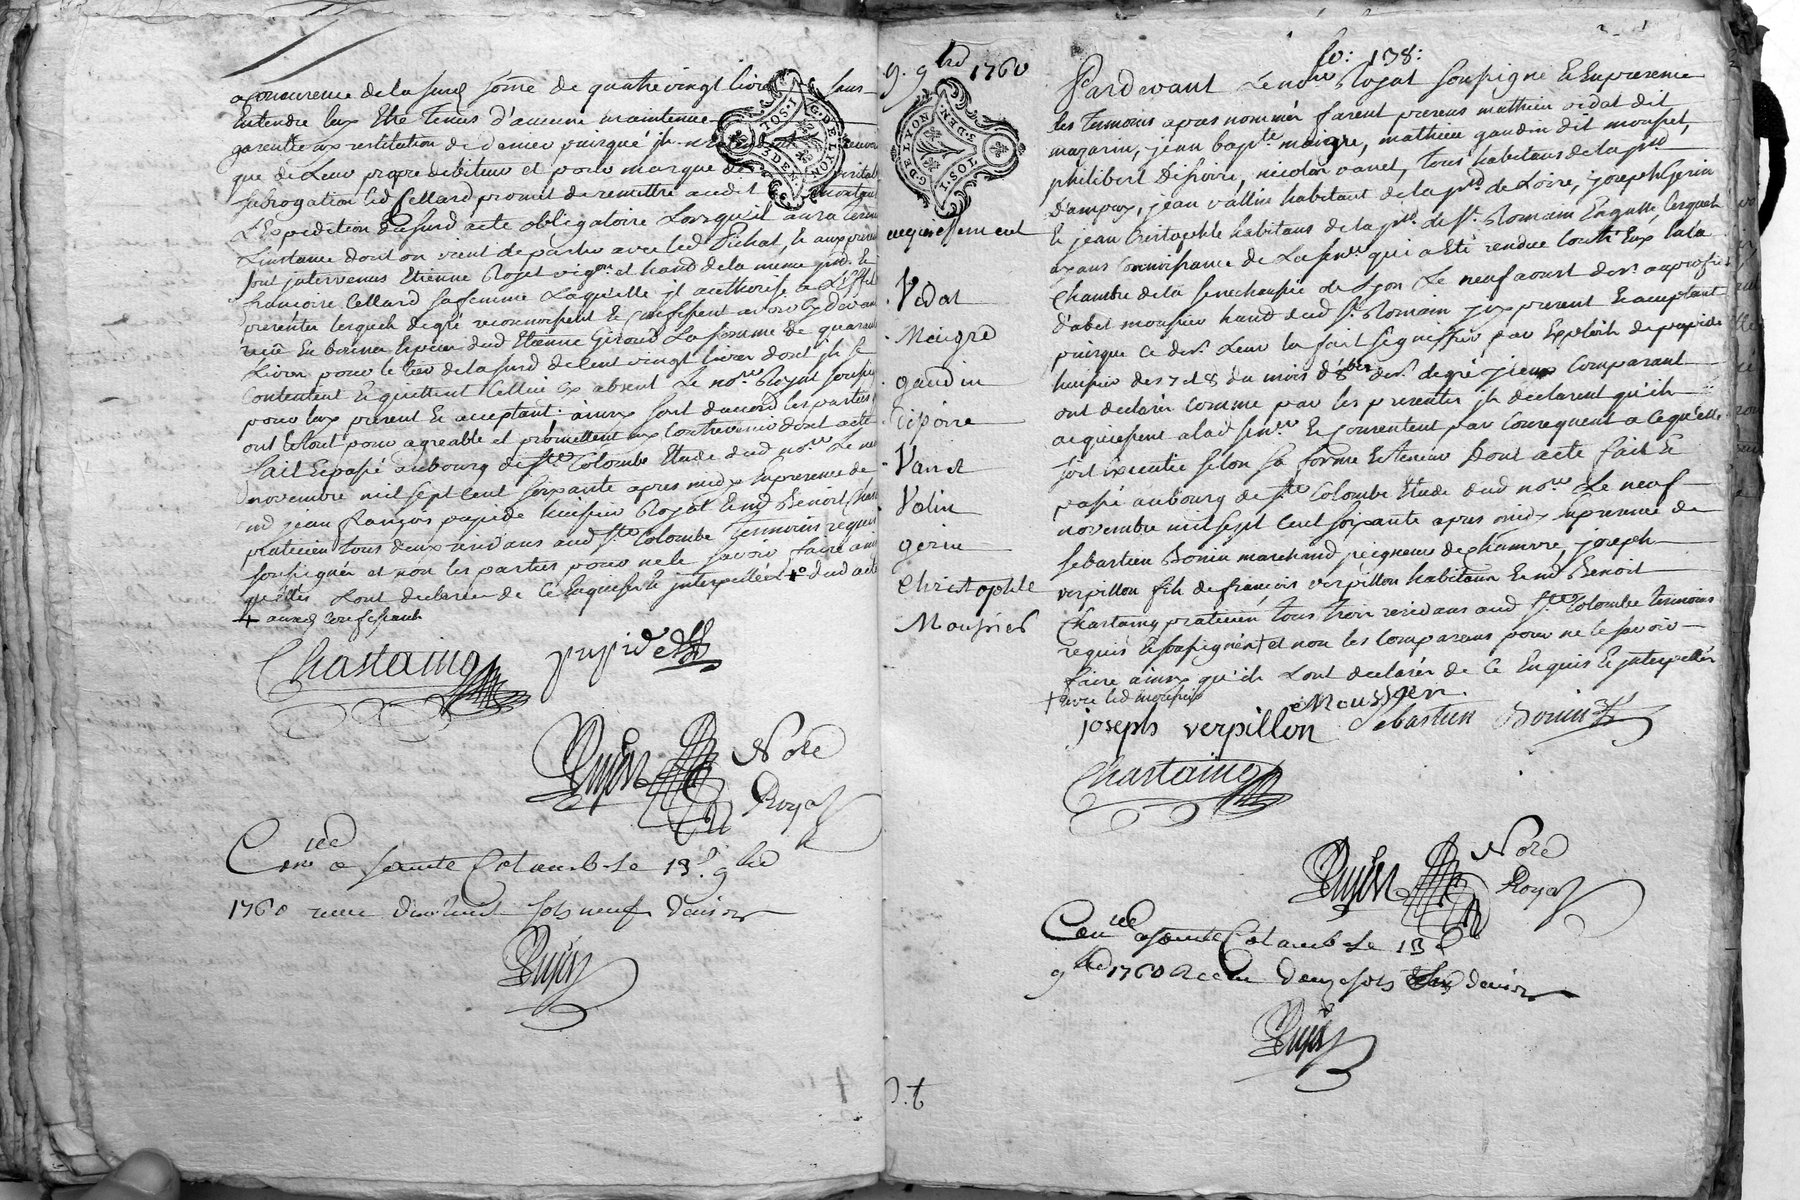 a concurence de la susd somme de quatre vingt livres sans
entendre eux etre tenus d'aucune maintenue
garentie ny restitution de deniers puisqu'il
que de leur propre debiteur et pour marque de
subrogation led Cellard promet de remettre aud
L'Expedition du susd acte obligatoire Lorsqu'il aura
L'instance dont on vient de parler avec led Pichat, Et aux presentes
sont intervenus Etienne Rojet vig.on et hand de la meme
francoise Cellard sa femme Laquelle jl authorise a L'effet
presentes lesquels de gré reconnoissent Et confessent avoir
reçu En bonnes Especes dud Etienne Giroud La somme de quarante
Livres pour le tiers de la susd de Cent vingt livres dont jls se
Contentent Et quittent Cellui cy absent Le no.re Royal soussigné
pour luy present Et acceptant: ainsy sont d'accord les parties
ont le tout pour agreable et promettent ny Contrevenir dont acte
fait Et passé au bourg de Ste Colombe Etude dud no.re Le neuf
novembre mil sept Cent soixante apres midy En presence de
jean françois pupide huissier Royal Et md Benoit Chastaing
praticien tous deux residans aud Ste Colombe temoins requis
soussignés et non les parties pour ne le savoir faire ainsy
qu'elles L'ont declaré de Ce Enquises Et interpellées + dud acte
+ auxd confessants
Chastaing pupide
Dujas Nore
Royal
Con.lé a sainte Colombe Le 13.e 9bre
1760 recu dix huit sols neuf deniers
Dujas
9. 9bre 1760
G. DE LYON
1 SOL
3 DEN
acquiessement
Vidat
Maigre
gaudin
Dipoire
Vanet
Valin
gerin
Christophle
Mousier
fo: 138:
Pardevant Le no.re Royal soussigné Et En presence
les temoins apres nommés furent presens mathieu vidat dit
mazarin, jean bap.te maigre, mathieu gaudin dit mouset,
philibert Dipoire, nicolas vanet, tous habitans de la p.sse
d'ampuy, jean vallin habitant de la p.sse de Loire, joseph Gerin
Et jean Cristophle habitans de la p.sse de St. Romain En galle lesquels
ayans Connoissance de La sen.ce qui a Eté rendue Contr'Eux En la
Chambre de la senechaussée de Lyon Le neuf aoust der. au profit
d'abel mousier hand dud St. Romain jcy present Et acceptant
puisque Ce der. Leur la fait signiffier par Exploits de pupide
huissier des 7 et 8 du mois d'8bre der. de gré jceux Comparant
ont declaré Comme par les presentes jls declarent qu'ils
acquiessent a lad sen.ce Et Consentent par Consequent a Ce qu'elle
soit Executée selon sa forme Et teneur Dont acte fait Et
passé au bourg de Ste Colombe Etude dud no.re Le neuf
novembre mil sept Cent soixante apres midy En presence de
sebastien Bonin marchand peigneur de chanvre, joseph
verpillon fils de francois verpillon habitans Et md Benoit
Chastaing praticien tous trois residans aud Ste Colombe temoins
requis Et soussignés + et non les Comparans pour ne le savoir
faire ainsy qu'ils L'ont declaré de Ce Enquis Et jnterpellés
+ avec led mousier
Mousier
joseph verpillon Sebastien Bonin
Chastaing
Dujas Nore
Royal
Con.lé a sainte Colombe Le 13 e
9bre 1760 Recu deux sols deniers
Dujas